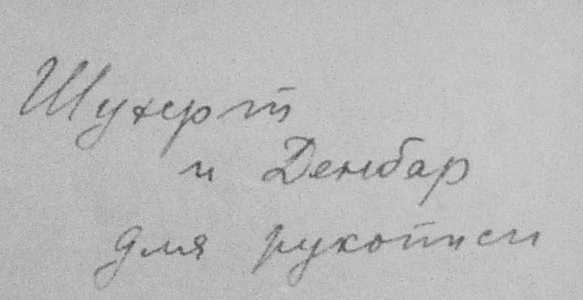 Шухерт
и Денбар
для рукописи